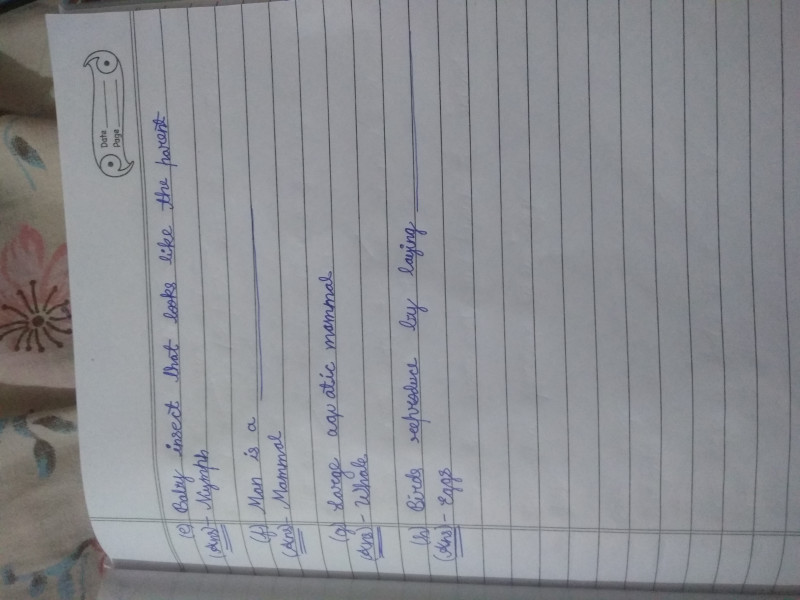 Date
Page
(e) Baby insect that looks like the parent
(Ans) - Nymph
(f) Man is a ________
(Ans) - Mammal
(g) Large aquatic mammal
(Ans) - Whale
(h) Birds reproduce by laying ________
(Ans) - Eggs